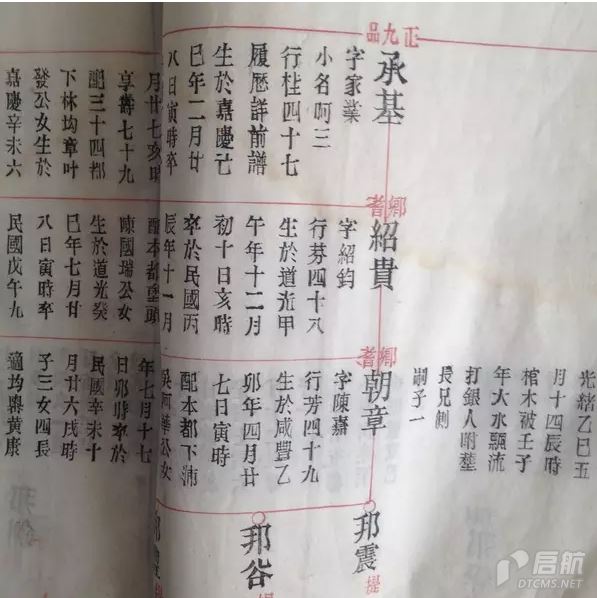 光緒乙巳五
月十四辰時
棺木被壬子
年大水飄流
打銀人嘲塟
長兄側
嗣子一
正九品
承基
字家業
小名啊三
行桂四十七
履歷詳前譜
生於嘉慶己
巳年二月廿
八日寅時卒
月廿七亥時
享壽七十九
配三十四都
下林均章叶
發公女生於
嘉慶辛未六
鄉耆
紹貴
字紹鈞
行芬四十八
生於道光甲
午年十二月
初十日亥時
卒於民國丙
辰年十一月
配本都
陳國瑞公女
生於道光癸
巳年七月廿
八日寅時卒
民國戊午九
鄉耆
朝章
字陳嘉
行芳四十九
生於咸豐乙
卯年四月廿
七日寅時
配本都下沛
公女
年七月十七
日卯時卒於
民國辛未十
月廿六戌時
子三女四長
適均興黃康
邦震
提
邦谷
启航
DTCMS.NET